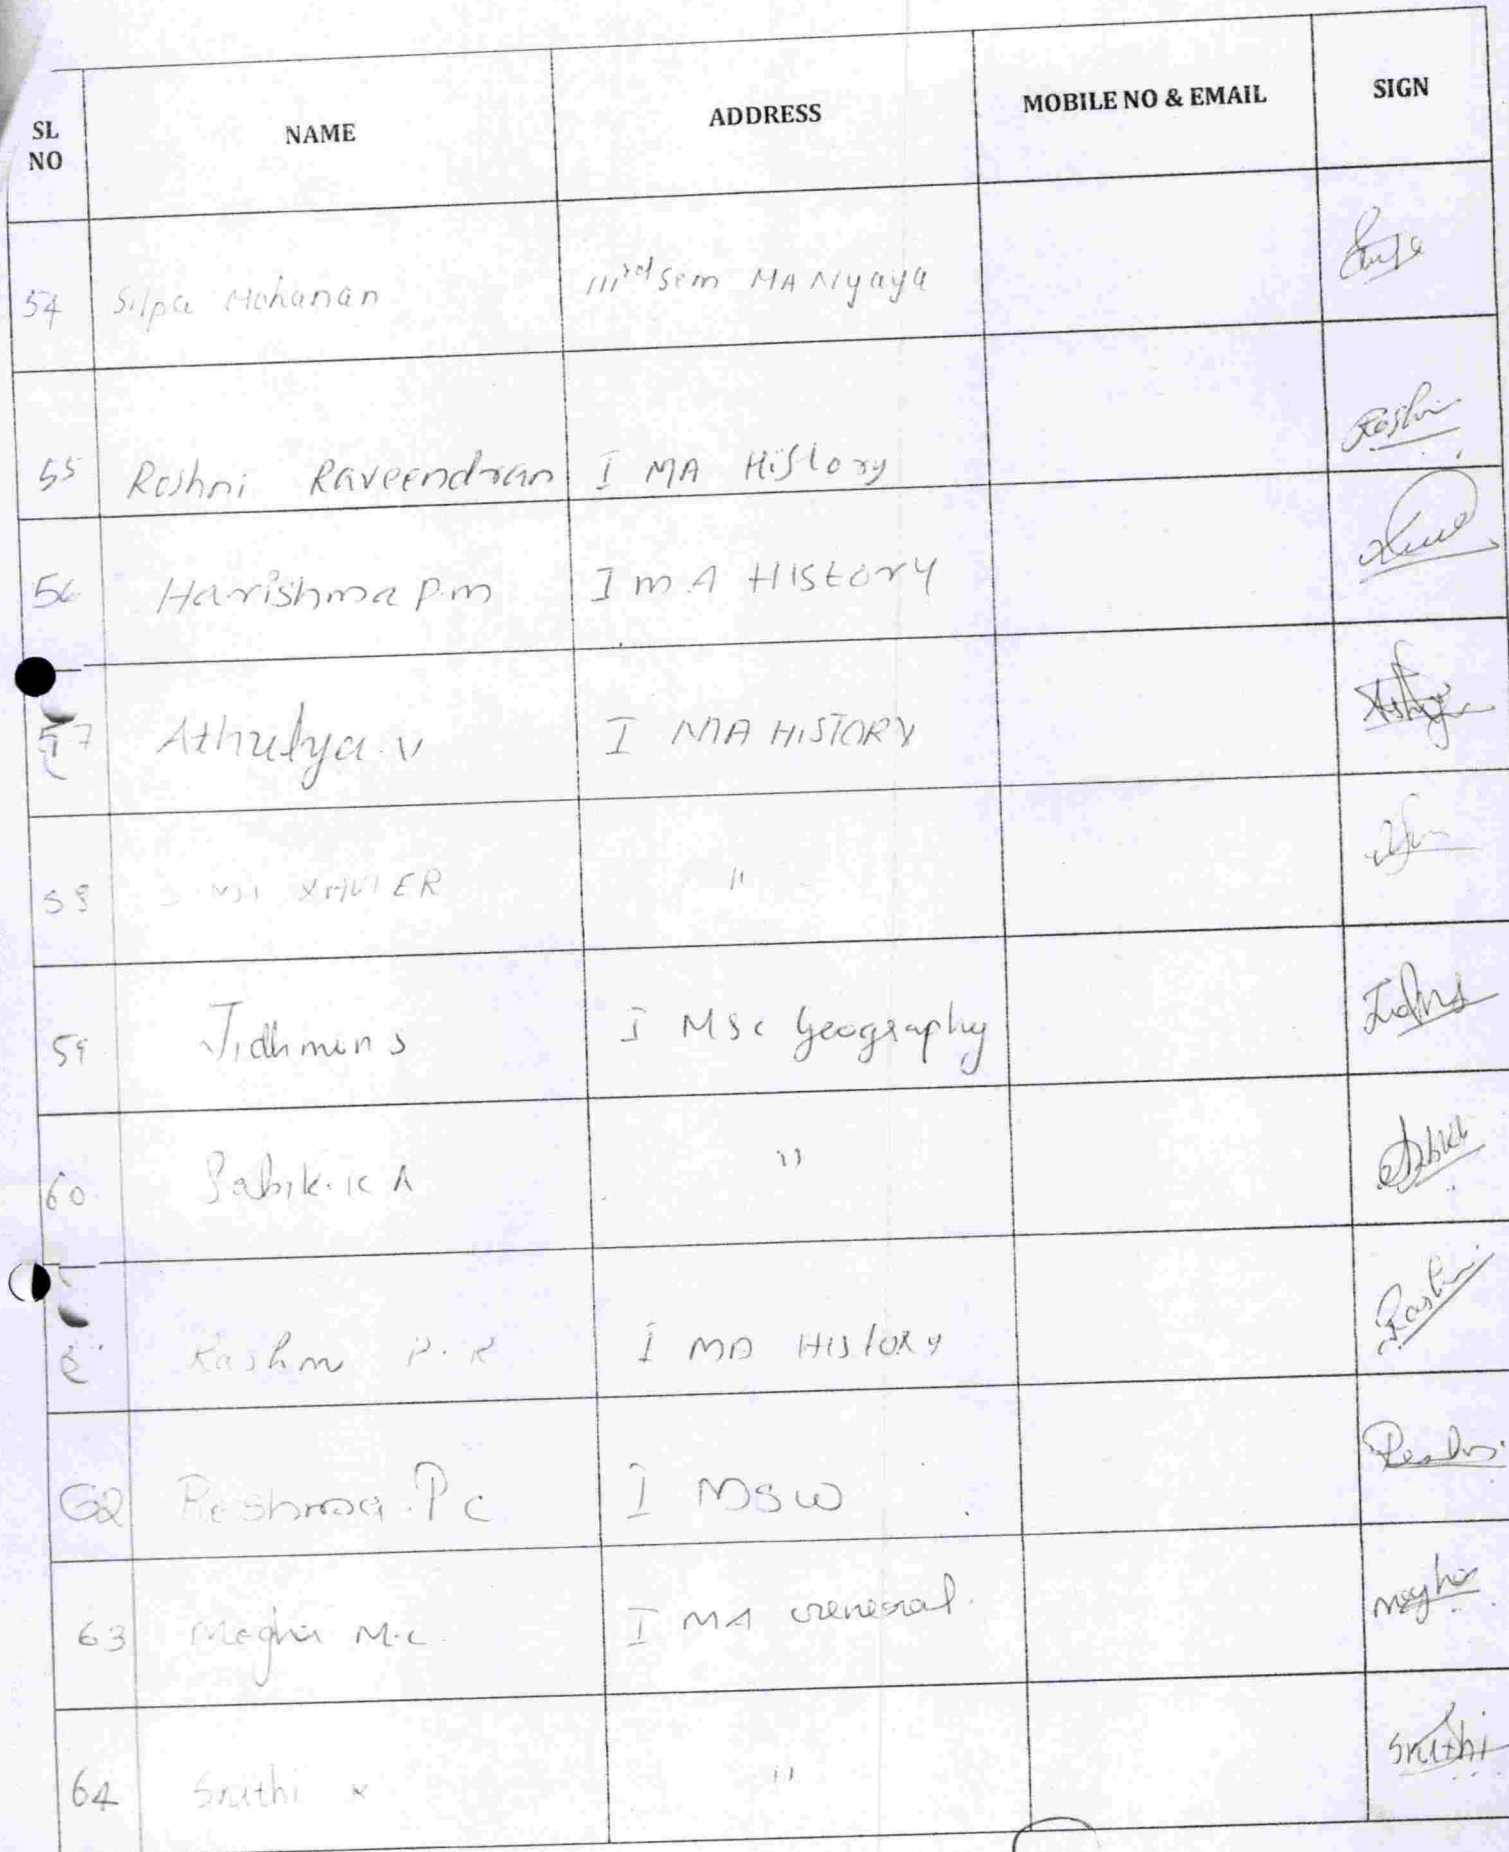 SL NO NAME ADDRESS MOBILE NO & EMAIL SIGN
54 Silpa Mohanan IIIrd sem MA Nyaya
55 Roshni Raveendran I MA History Roshni
56 Harishma P.m I m A History
57 Athulya.v I MA HISTORY
58 XAVIER "
59 Jidhmon s I Msc Geography
60 Sabik.K A "
Rashmi P.R I MA HISTORY Rashmi
62 Reshma.Pc I MSW
63 Megha M.C. I MA General. Megha
64 Sruthi K " Sruthi